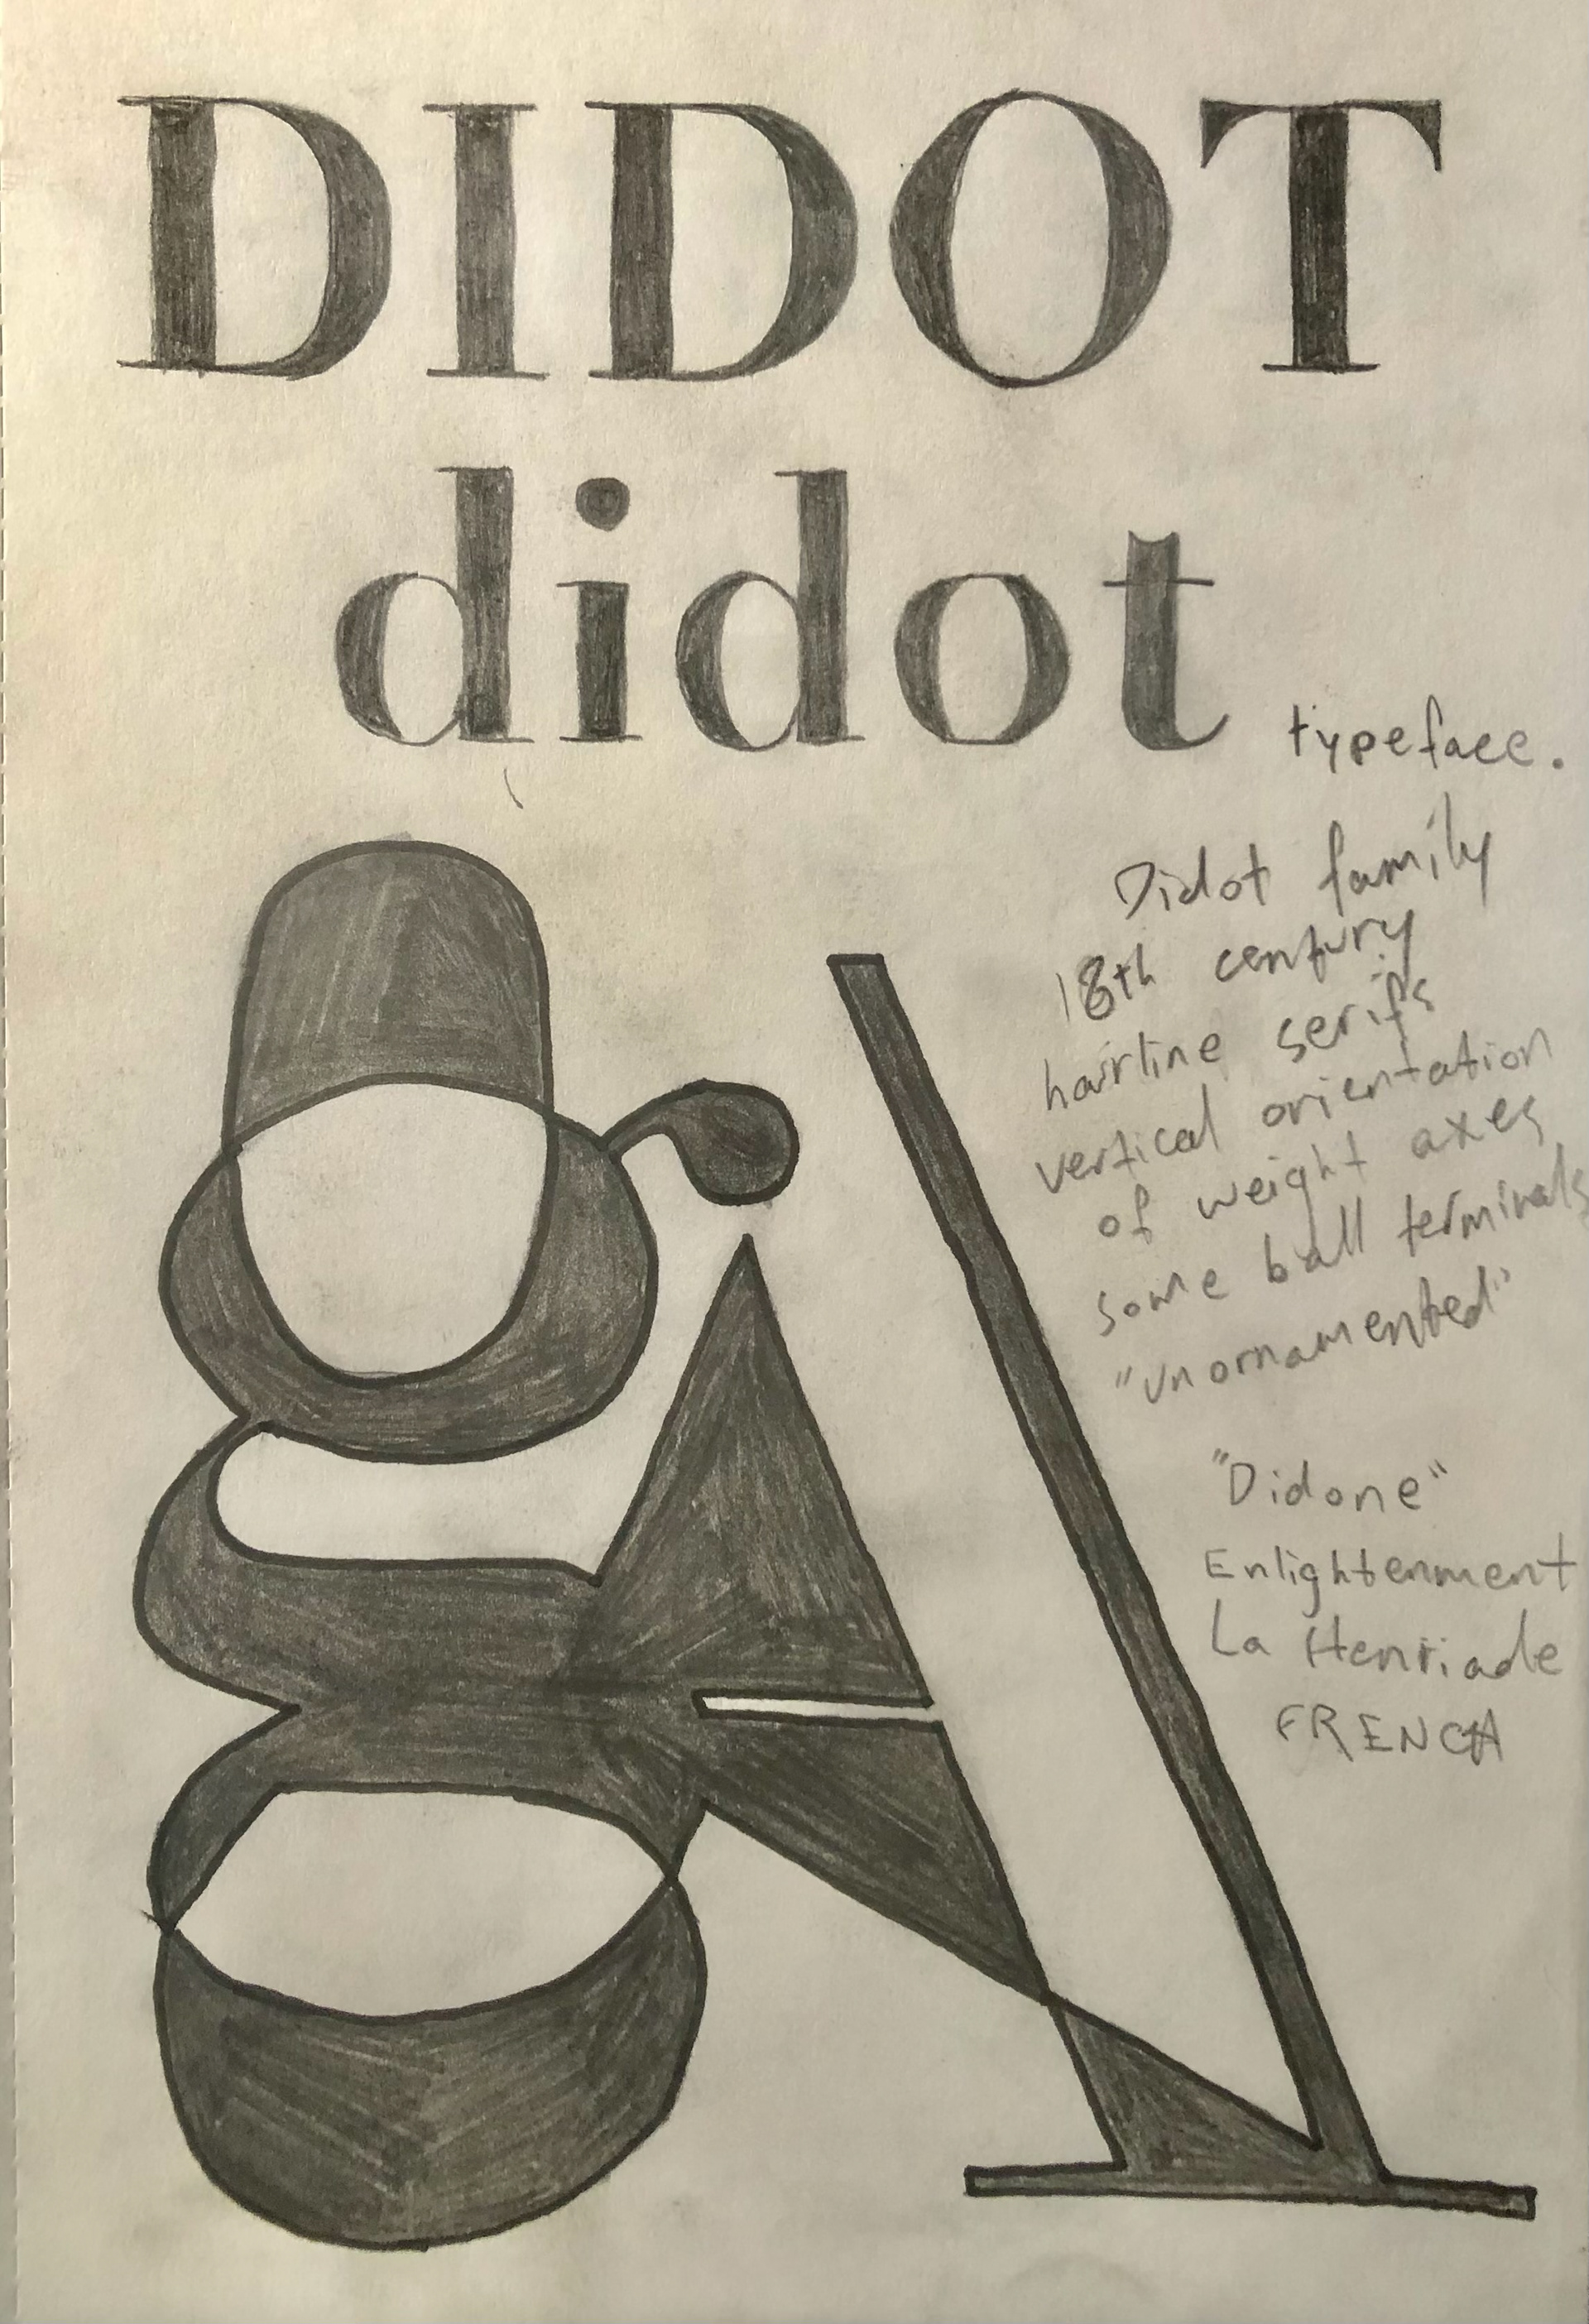 DIDOT
didot
typeface.
Didot family
18th century
hairline serifs
vertical orientation
of weight axes
some ball terminals
"unornamented"
"Didone"
Enlightenment
La Henriade
FRENCH
gA